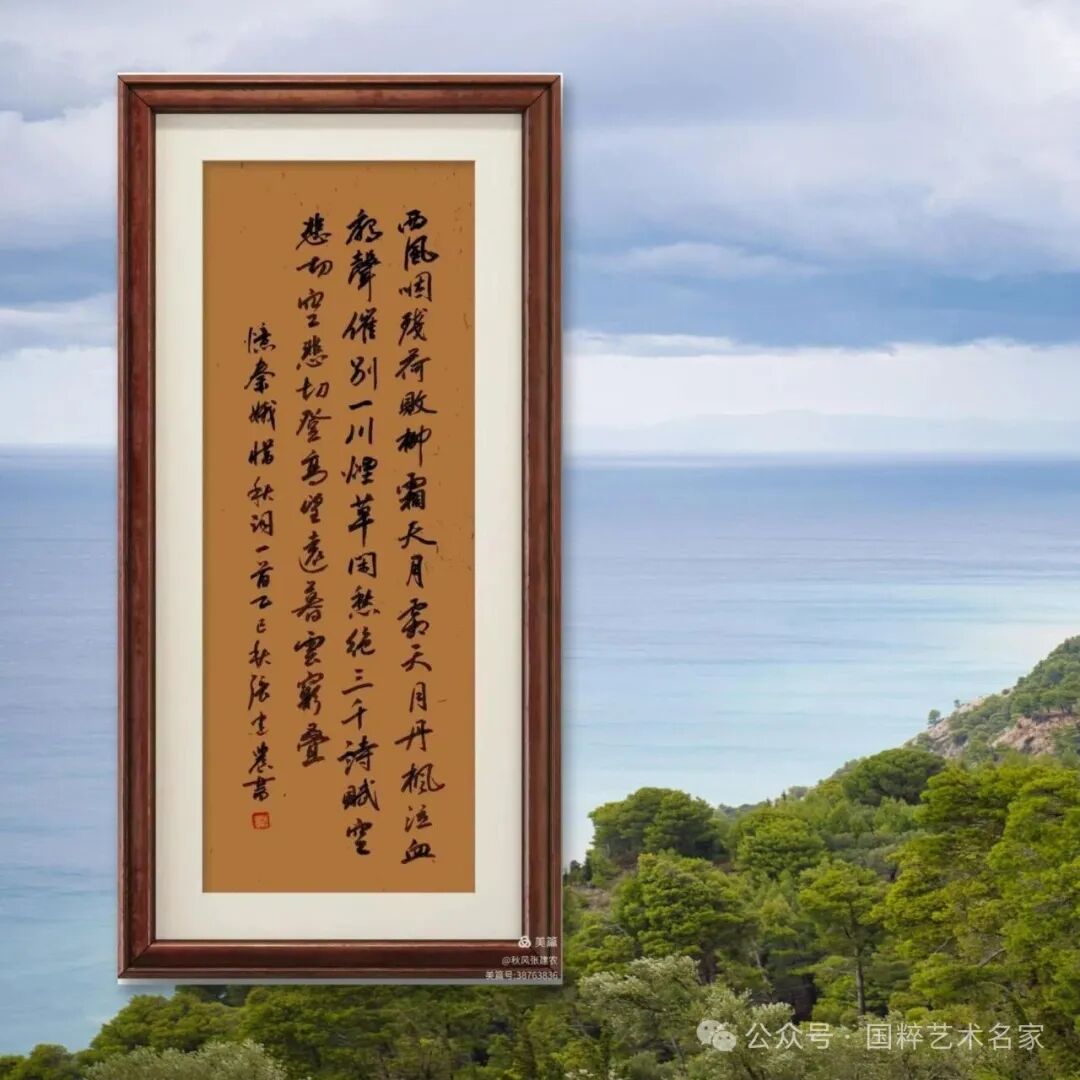 西風咽残荷敗柳霜天月霜天月丹楓泣血
鵑聲催别一川煙草闲愁絶三千詩賦空
悲切空悲切登高望遠暮雲窮叠
憶秦娥惜秋词一首乙巳秋張建農書
美篇
@秋风张建农
美篇号:38763836
公众号·国粹艺术名家